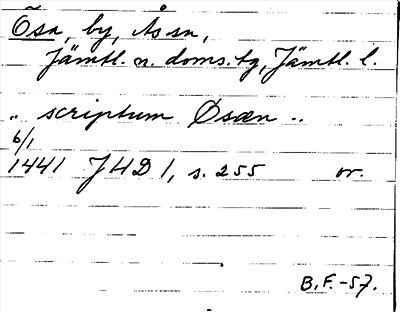 Õsa, by, Ås sn,
Jämtl. n. doms. tg, Jämtl. l.
„ scriptum Øsæn „
6/1
1441 JHD 1, s. 255 or.
B.F.-57.